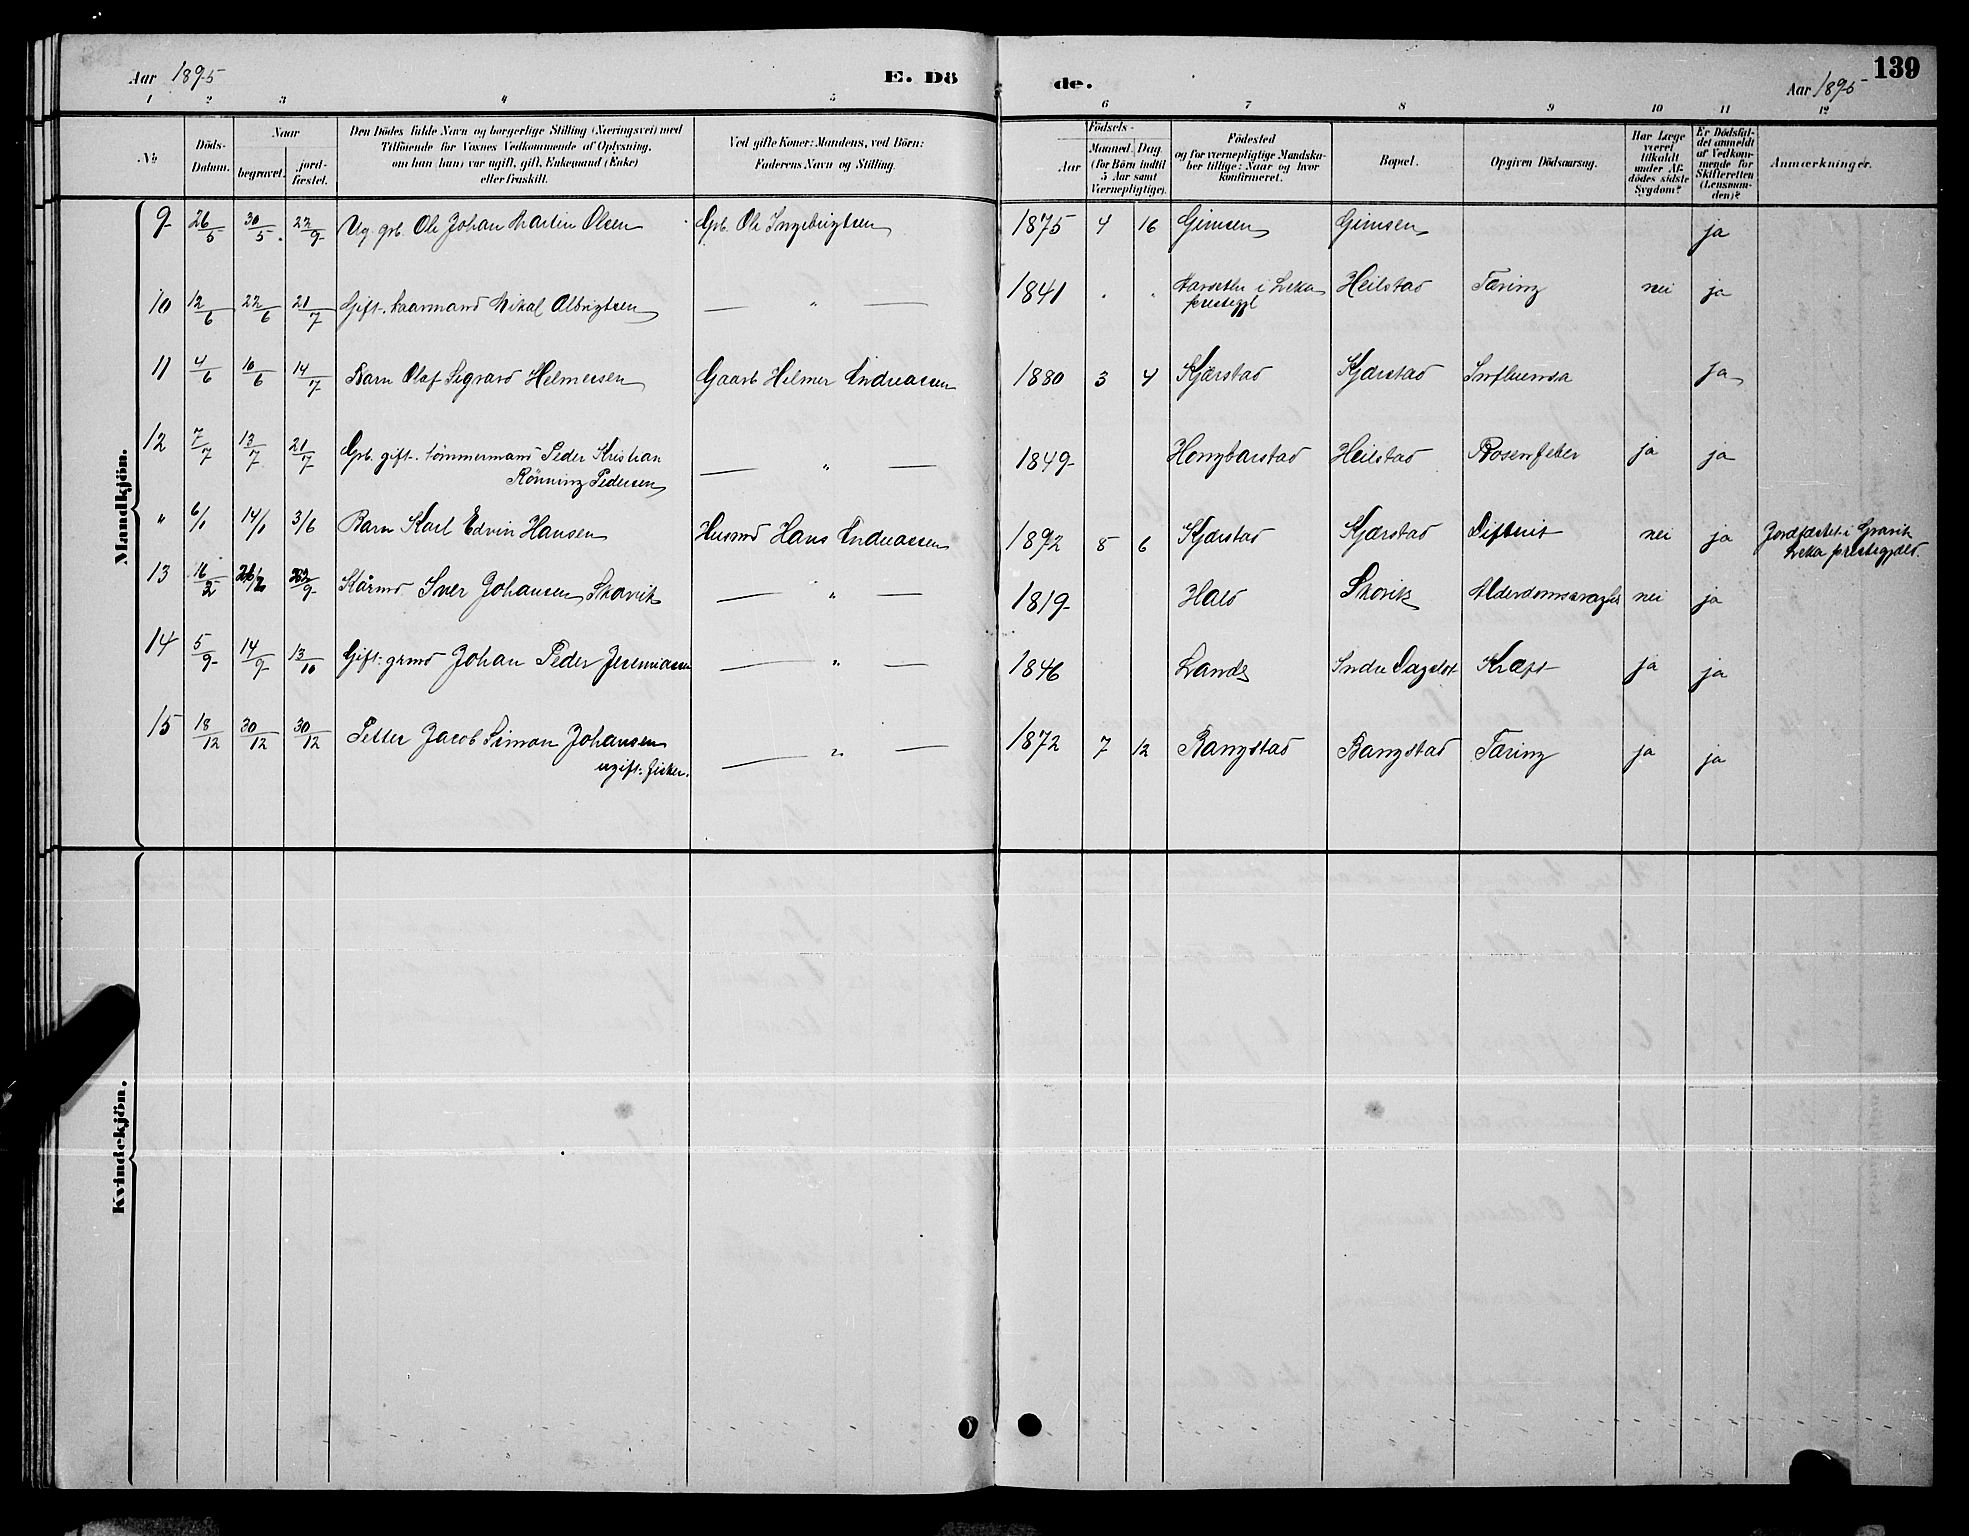 Aar 1895 E. Döde. Aar 1895 139
1 2 3 4 5 6 7 8 9 10 11 12
No
Döds-Datum.
Naar
begravet.
jordfæstet.
Den Dödes fulde Navn og borgerlige Stilling (Næringsvei) med
Tilföiende for Voxnes Vedkommende af Oplysning,
om han (hun) var ugift, gift, Enkemand (Enke)
eller fraskilt.
Ved gifte Koner: Mandens, ved Börn:
Faderens Navn og Stilling.
Födsels-
Aar
Maaned. Dag
(for Börn indtil
5 Aar samt
Værnepligtige).
Födested
og for værnepligtige Mandska-
ber tillige: Naar og hvor
konfirmeret.
Bopæl.
Opgiven Dödsaarsag.
Har Læge
været
tilkaldt
under Af-
dödes sidste
Sygdom?
Er Dödsfal-
det anmeldt
af Vedkom-
mende for
Skifteretten
(Lensman-
den)?
Anmærkninger.
Mandkjön.
9 26/5 30/5. 22/9 Ug. grb. Ole Johan Martin Olsen Grb. Ole Ingebrigtsen 1875 4 16 Gimsen Gimsen ja
10 12/6 22/6 21/7 Gift. kaarmand Mikal Albrigtsen — " — 1841 " " i Leka Heilstad Tæring nei ja
prestegjl
11 4/6 10/6 14/7 Barn Olaf Sigvard Helmersen Gaarb Helmer Andreassen 1880 3 4 Kjærstad Kjærstad Influensa ja
12 7/7 13/7 21/7 Grb. gift. tömmermand Peder Kristian — " — 1849 Hongbarstad Heilstad Rosenfeber ja ja
Rönning Pedersen
" 6/1 14/1 3/6 Barn Karl Edvin Hansen Husmd Hans Andreassen 1892 8 6 Kjærstad Kjærstad Difterit nei ja Jordfæstet i Gravik
Leka prestegjeld.
13 16/2 Kårmd Iver Johansen Skavik — " — 1819 Hald Skavik Alderdomssvaghed nei ja
14 5/9 14/9 13/10 Gift: grmd Johan Peder Jeremiassen — " — 1846 Lande Indre Dagslot Kræft ja ja
15 18/12 30/12 30/12 Petter Jacob Simon Johansen — " — 1872 7 12 Bangstad Bangstad Tæring ja ja
ugift: fisker.
Kvindekjön.